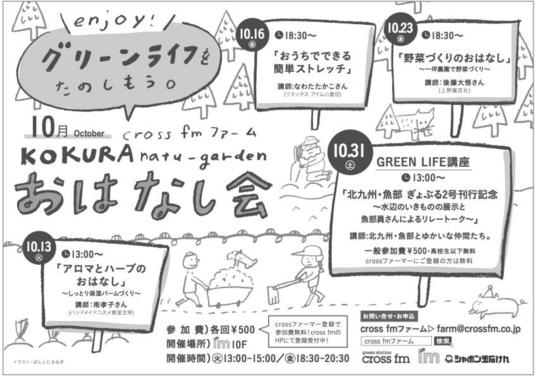 enjoy!
グリーンライフを
たのしもう。
10月 October
cross fm ファーム
KOKURA natu-garden
おはなし会
10.13 火
13:00〜
「アロマとハーブの
おはなし」
〜しっとり保湿バームづくり〜
講師:南孝子さん
(ハンドメイドコスメ教室主宰)
10.16 金
18:30〜
「おうちでできる
簡単ストレッチ」
講師:なわたたかこさん
(リラックス アイムの倉店)
10.23 金
18:30〜
「野菜づくりのおはなし」
〜一坪農園で野菜づくり〜
講師:後藤大悟さん
(上野園芸社)
10.31 土
GREEN LIFE講座
13:00〜
「北九州・魚部 ぎょぶる2号刊行記念
〜水辺のいきものの展示と
魚部員さんによるリレートーク〜」
講師:北九州・魚部とゆかいな仲間たち。
一般参加費¥500・高校生以下無料
crossファーマーにご登録の方は無料
参加費)各回¥500
crossファーマー登録で
参加費無料!cross fmの
HPにて登録受付中!
開催場所) im 10F
開催時間) 火13:00-15:00/金18:30-20:30
お問い合せ・お申込
cross fmファーム▷farm@crossfm.co.jp
cross fmファーム 検索
green station
cross fm シャボン玉石けん
イラスト・ぱんとたまねぎ